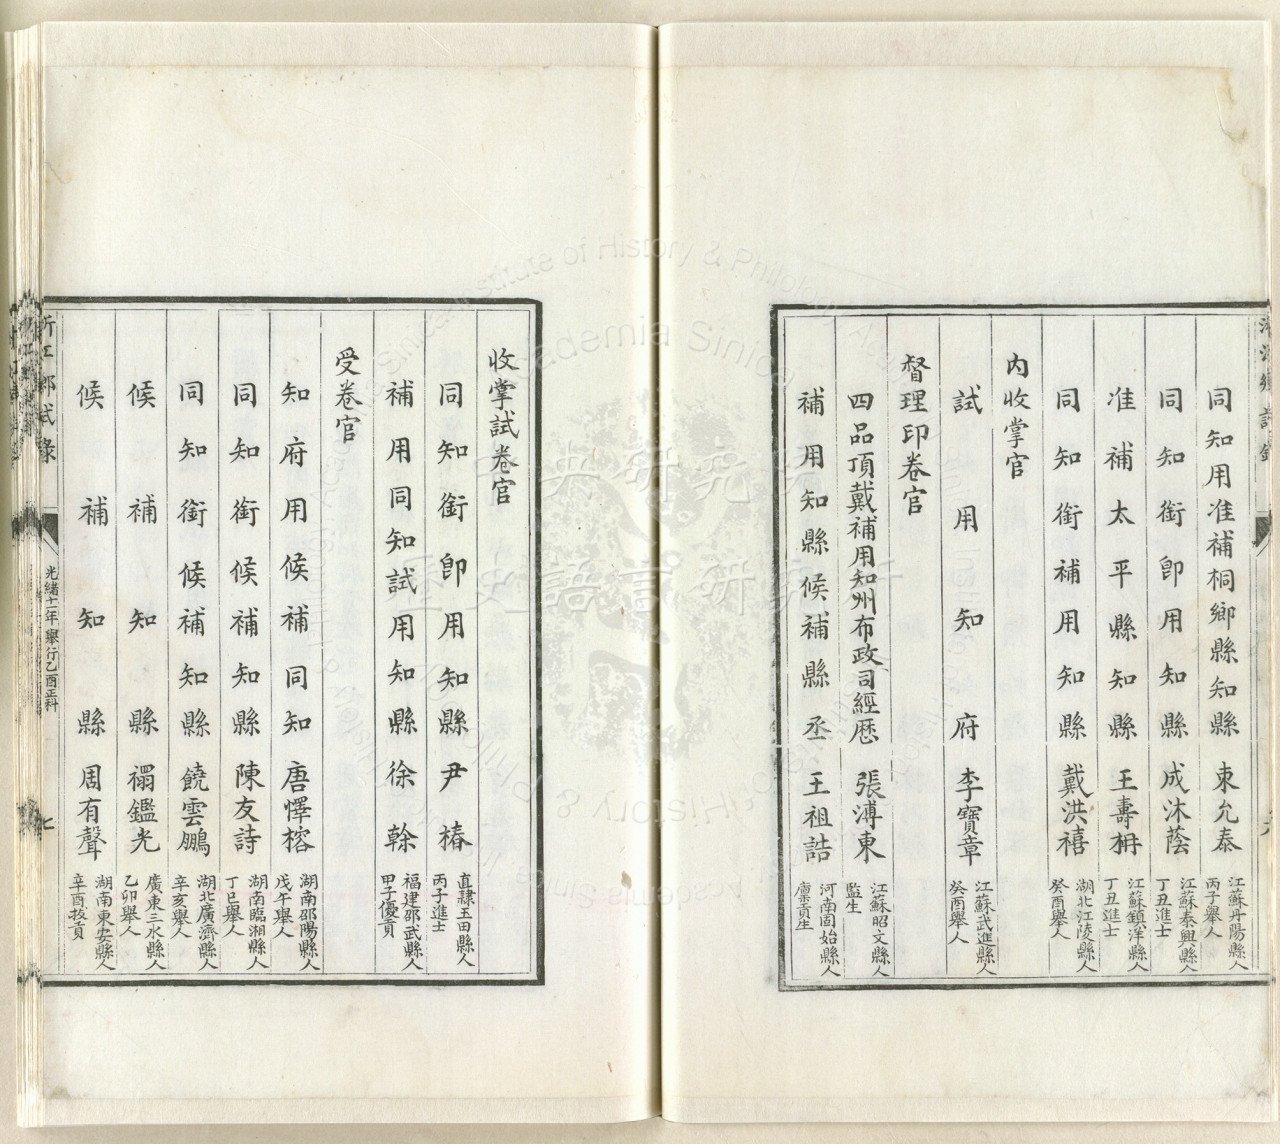 同知用准補桐鄉縣知縣 束允泰 江蘇丹陽縣人 丙子舉人
同知銜卽用知縣 成沐蔭 江蘇泰興縣人 丁丑進士
准補太平縣知縣 王壽枬 江蘇鎮洋縣人 丁丑進士
同知銜補用知縣 戴洪禧 湖北江陵縣人 癸酉舉人
內收掌官
試用知府 李寶章 江蘇武進縣人 癸酉舉人
督理印卷官
四品頂戴補用知州布政司經歷 張溥東 江蘇昭文縣人 監生
補用知縣候補縣丞 王祖誥 河南固始縣人 廩貢生
收掌試卷官
同知銜卽用知縣 尹椿 直隸玉田縣人 丙子進士
補用同知試用知縣 徐榦 福建邵武縣人 甲子優貢
受卷官
知府用候補同知 唐懌榕 湖南邵陽縣人 戊午舉人
同知銜候補知縣 陳友詩 湖南臨湘縣人 丁巳舉人
同知銜候補知縣 饒雲鵬 湖北廣濟縣人 辛亥舉人
候補知縣 禤鑑光 廣東三水縣人 乙卯舉人
候補知縣 周有聲 湖南東安縣人 辛酉拔貢
浙江鄉試錄 光緒十一年舉行乙酉正科 七
中央研究院
歷史語言研究所
Institute of History & Philology, Academia Sinica